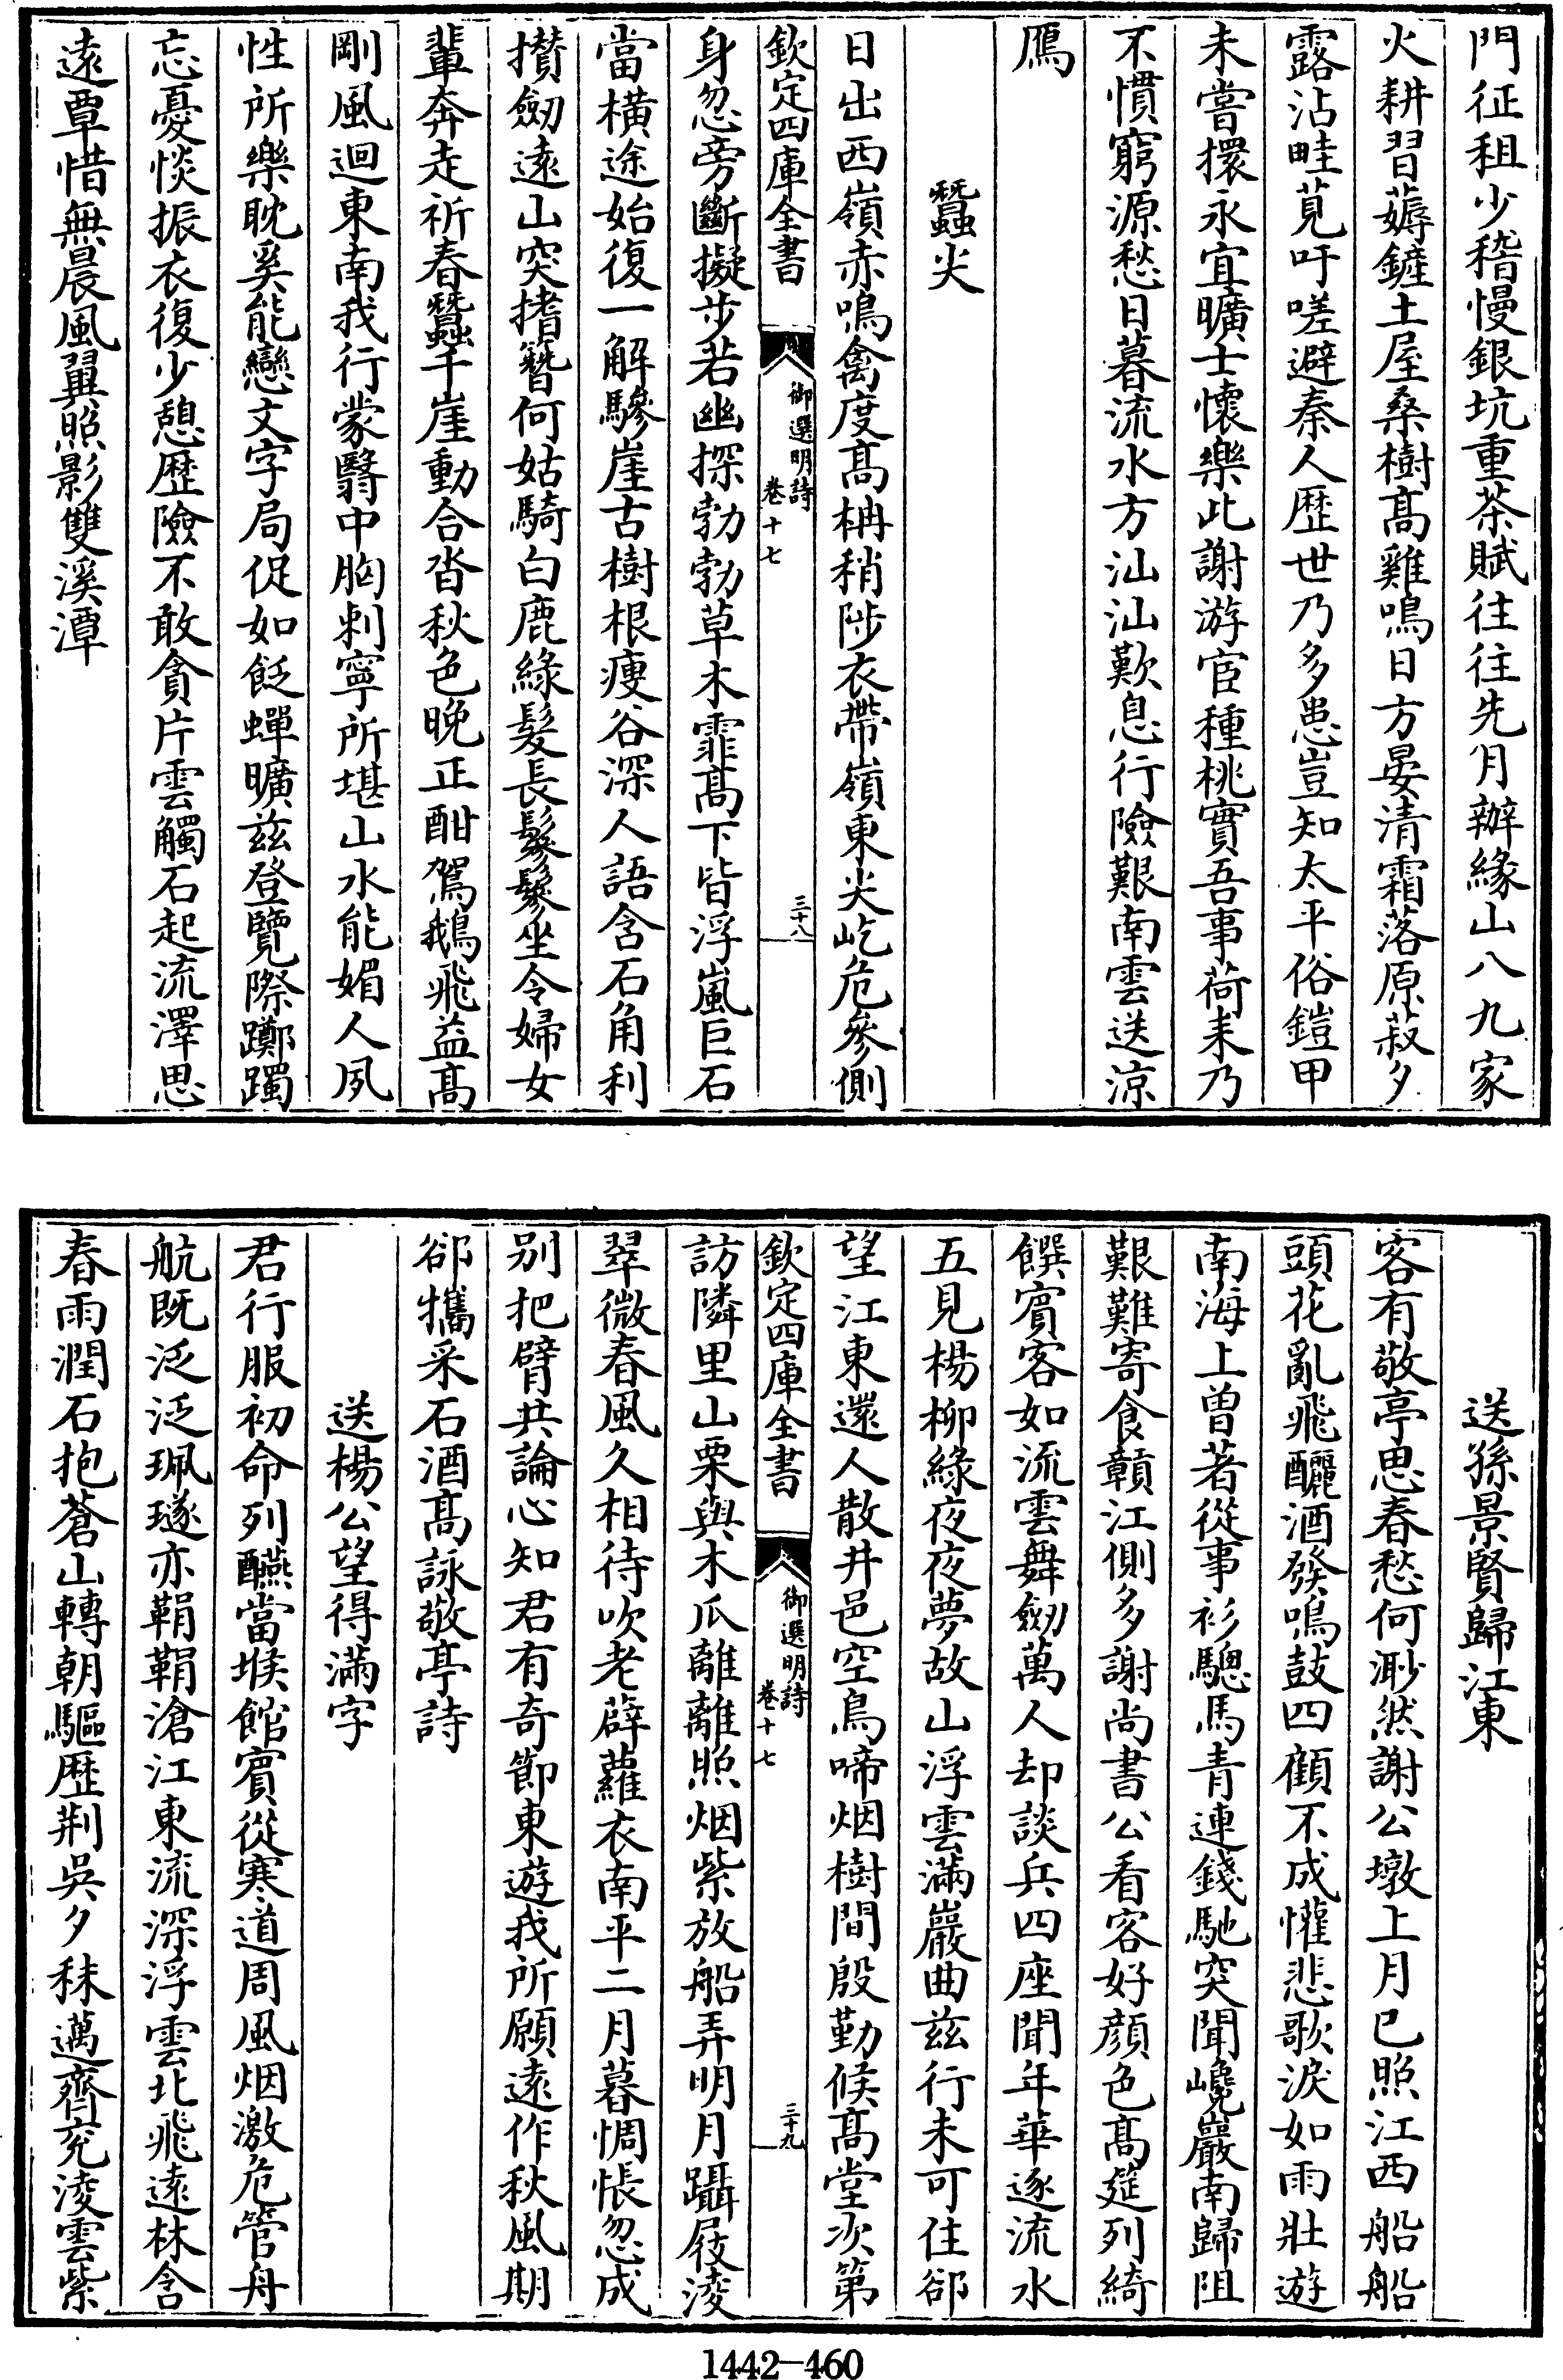 門征租少稽慢銀坑重茶賦往往先月辦緣山八九家
火耕習薅鏟土屋桑樹髙雞鳴日方晏清霜落原菽夕
露沾畦莧吁嗟避秦人歴世乃多患豈知太平俗鎧甲
未嘗擐永宜曠士懷樂此謝游宦種桃實吾事荷耒乃
不慣窮源愁日暮流水方汕汕歎息行險艱南雲送涼
鴈
蠶尖
日出西嶺赤鳴禽度髙枏稍陟衣帶嶺東尖屹危參側
欽定四庫全書
御選明詩
卷十七
三十八
身忽旁斷擬步若幽探勃勃草木霏髙下皆浮嵐巨石
當橫途始復一解驂崖古樹根瘦谷深人語含石角利
攢劒遠山突搘簪何姑騎白鹿緑髮長鬖鬖坐令婦女
輩奔走祈春蠶千崖動合沓秋色晚正酣鴐鵝飛益髙
剛風迴東南我行蒙翳中胸刺寧所堪山水能媚人夙
性所樂耽奚能戀文字局促如飯蟬曠兹登覽際躑躅
忘憂惔振衣復少憩歴險不敢貪片雲觸石起流澤思
逺覃惜無晨風翼照影雙溪潭
送孫景賢歸江東
客有敬亭思春愁何渺然謝公墩上月已照江西船船
頭花亂飛釃酒發鳴鼓四顧不成懽悲歌淚如雨壯遊
南海上曽著從事衫驄馬青連錢馳突聞巉巖南歸阻
艱難寄食贑江側多謝尚書公看客好顔色髙筵列綺
饌賓客如流雲舞劒萬人却談兵四座聞年華逐流水
五見楊柳緑夜夜夢故山浮雲滿巖曲兹行未可住郤
望江東還人散井邑空鳥啼烟樹間殷勤候髙堂次第
欽定四庫全書
御選明詩
卷十七
三十九
訪隣里山栗與木瓜離離照烟紫放船弄明月躡屐淩
翠微春風久相待吹老薜蘿衣南平二月暮惆悵忽成
别把臂共論心知君有奇節東遊我所願遠作秋風期
郤攜采石酒髙詠敬亭詩
送楊公望得滿字
君行服初命列醼當堠館賓從寒道周風烟激危管舟
航既泛泛珮璲亦鞙鞙滄江東流深浮雲北飛遠林含
春雨潤石抱蒼山轉朝驅歴荆吳夕秣邁齊兖淩雲紫
1442—460